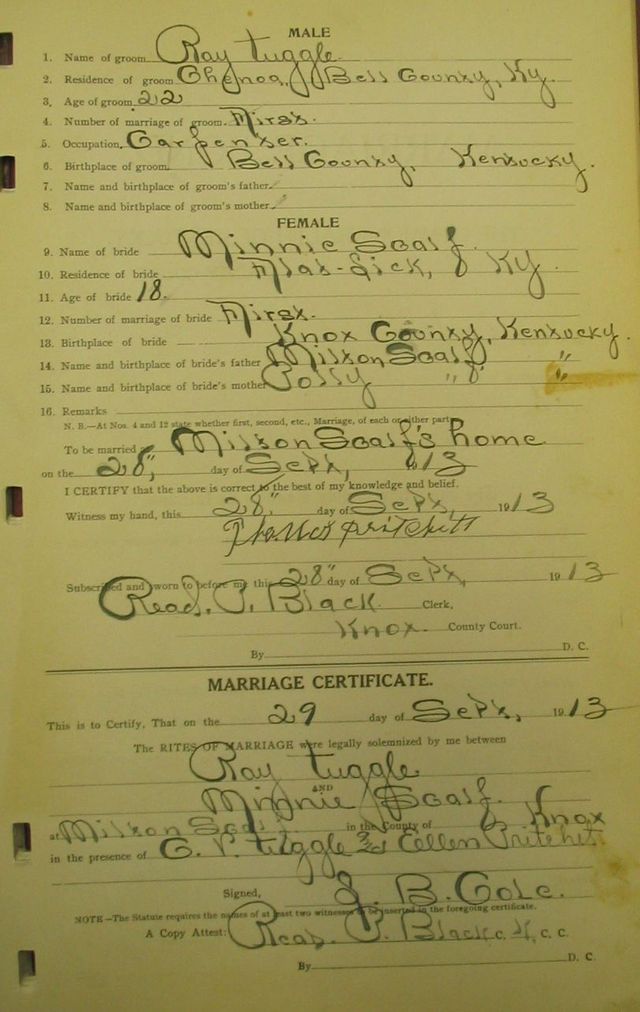 MALE
1. Name of groom Ray Tuggle
2. Residence of groom Chenoa, Bell County, Ky.
3, Age of groom 22
4. Number of marriage of groom. First.
5. Occupation, Carpenter.
6. Birthplace of groom Bell County, Kentucky.
7. Name and birthplace of groom's father
8. Name and birthplace of groom's mother
FEMALE
9. Name of bride Minnie Scalf.
10. Residence of bride Flat-Lick, Ky.
11. Age of bride 18.
12. Number of marriage of bride First.
13. Birthplace of bride Knox County, Kentucky.
14. Name and birthplace of bride's father Milton Scalf "
15. Name and birthplace of bride's mother Polly " "
16. Remarks
N. B.—At Nos. 4 and 12 state whether first, second, etc., Marriage, of each or either part
To be married Milton Scalf's home
on the 28", day of Sept, 1913
I CERTIFY that the above is correct to the best of my knowledge and belief.
Witness my hand, this 28." day of Sept, 1913
Thomas Pritchett
Subscribed and sworn to before me this 28" day of Sept, 1913
Read. P. Black Clerk,
Knox County Court.
By D. C.
MARRIAGE CERTIFICATE.
This is to Certify, That on the 29 day of Sept, 1913
The RITES OF MARRIAGE were legally solemnized by me between
Ray Tuggle
AND
Minnie Scalf.
at Milton Scalf in the County of Knox
in the presence of G. V. Tuggle & Cellen Pritchet
Signed, J. B. Cole.
NOTE—The Statute requires the names of at least two witnesses to be inserted in the foregoing certificate.
A Copy Attest: Read. P. Black C. K. C. C.
By D. C.